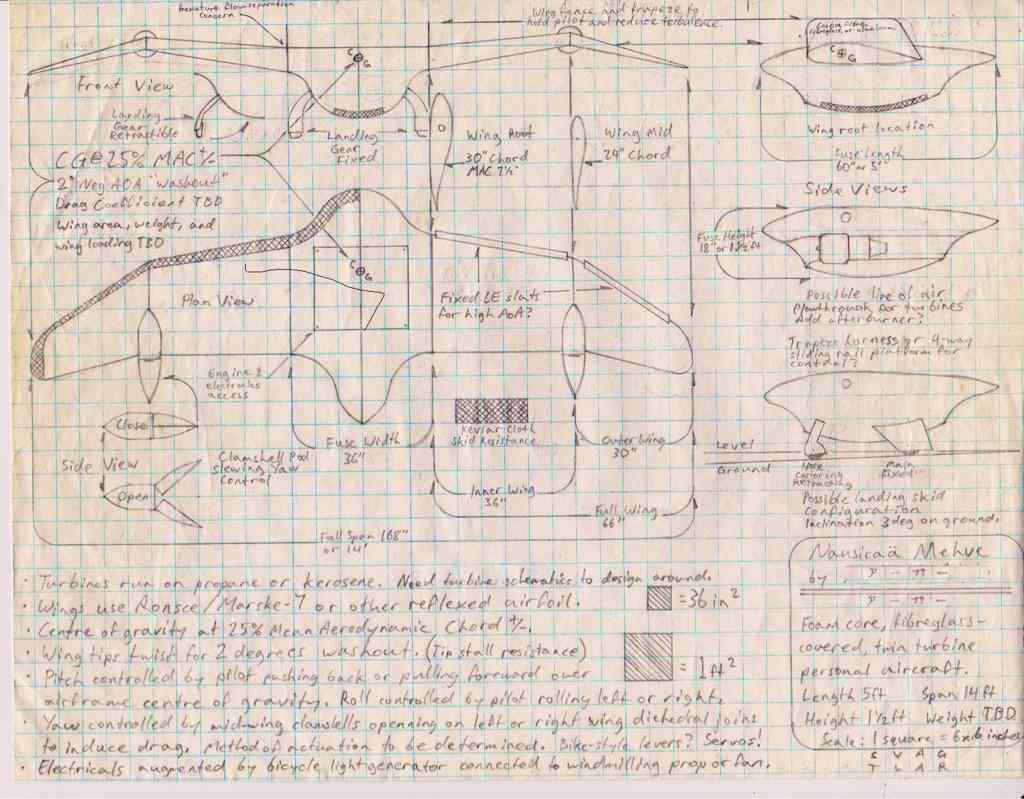 Premature flow separation
Concern
Wing fence and trapeze to
hold pilot and reduce turbulence.
Front View
CG
Landing
Gear
Retractible
Landing
Gear
Fixed
Wing Root
30" Chord
MAC 7½"
Wing Mid
24" Chord
CG
Wing root location
Fuse Length
60" or 5'
CG@25% MAC +/-
2° Neg AOA "washout"
Drag Coefficient TBD
Wing area, weight, and
wing loading TBD
Side Views
Fuse Height
18" or 1½ft
CG
Plan View
Fixed LE slats
for high AoA?
Possible line of air
flowthrough for turbines
Add afterburner?
Trapeze harness or 4-way
sliding rail platform for
control?
Engine &
electronics
access
Close
Kevlar Cloth
Skid Resistance
Fuse Width
36"
Outer Wing
30"
Level
Ground
Side View
Clamshell Pod
Slewing Yaw
Control
Open
Inner Wing
36"
Full Wing
66"
Nose
Castoring
Retracting
Main
Fixed
Possible landing skid
configuration
Inclination 3deg on ground.
Full Span 168"
or 14'
Nausicaä Mehve
by
· Turbines run on propane or kerosene. Need turbine schematics to design around.
· Wings use Ronsce/Marske-7 or other reflexed airfoil.
=36in²
· Centre of gravity at 25% Mean Aerodynamic Chord +/-.
· Wing tips twist for 2 degrees washout. (Tip stall resistance)
= 1ft²
· Pitch controlled by pilot pushing back or pulling forward over
airframe centre of gravity. Roll controlled by pilot rolling left or right.
· Yaw controlled by midwing clamshells openning on left or right wing dichedral joins
to induce drag. Method of actuation to be determined. Bike-style levers? Servos!
· Electricals augmented by bicycle light generator connected to windmilling prop or fan.
Foam core, fibreglass-
covered, twin turbine
personal aircraft.
Length 5ft Span 14ft
Height 1½ft Weight TBD
Scale: 1 square = 6x6 inches
S V A G
T L A R